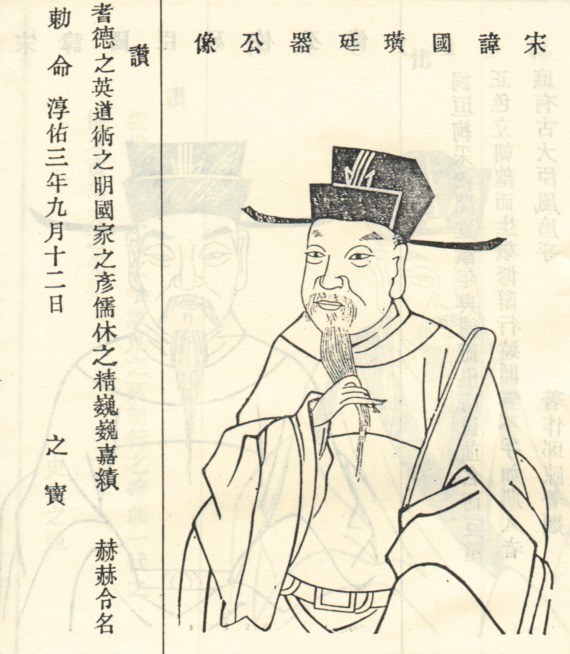 宋諱國璜廷器公像
讚
耆德之英道術之明國家之彥儒休之精巍巍嘉績 赫赫令名
勅命 淳佑三年九月十二日 之寶